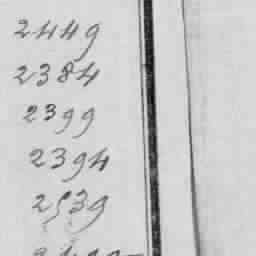 2449
2384
2399
2394
2539